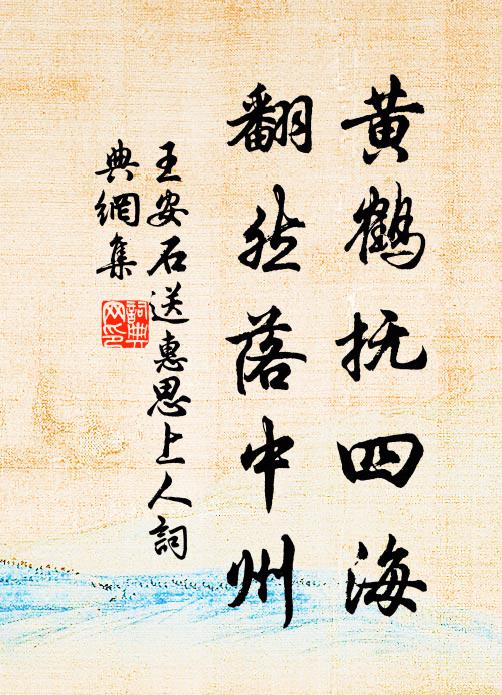 黄鶴抚四海
翻然落中州
王安石送惠思上人詞
典網集
詞典
网印